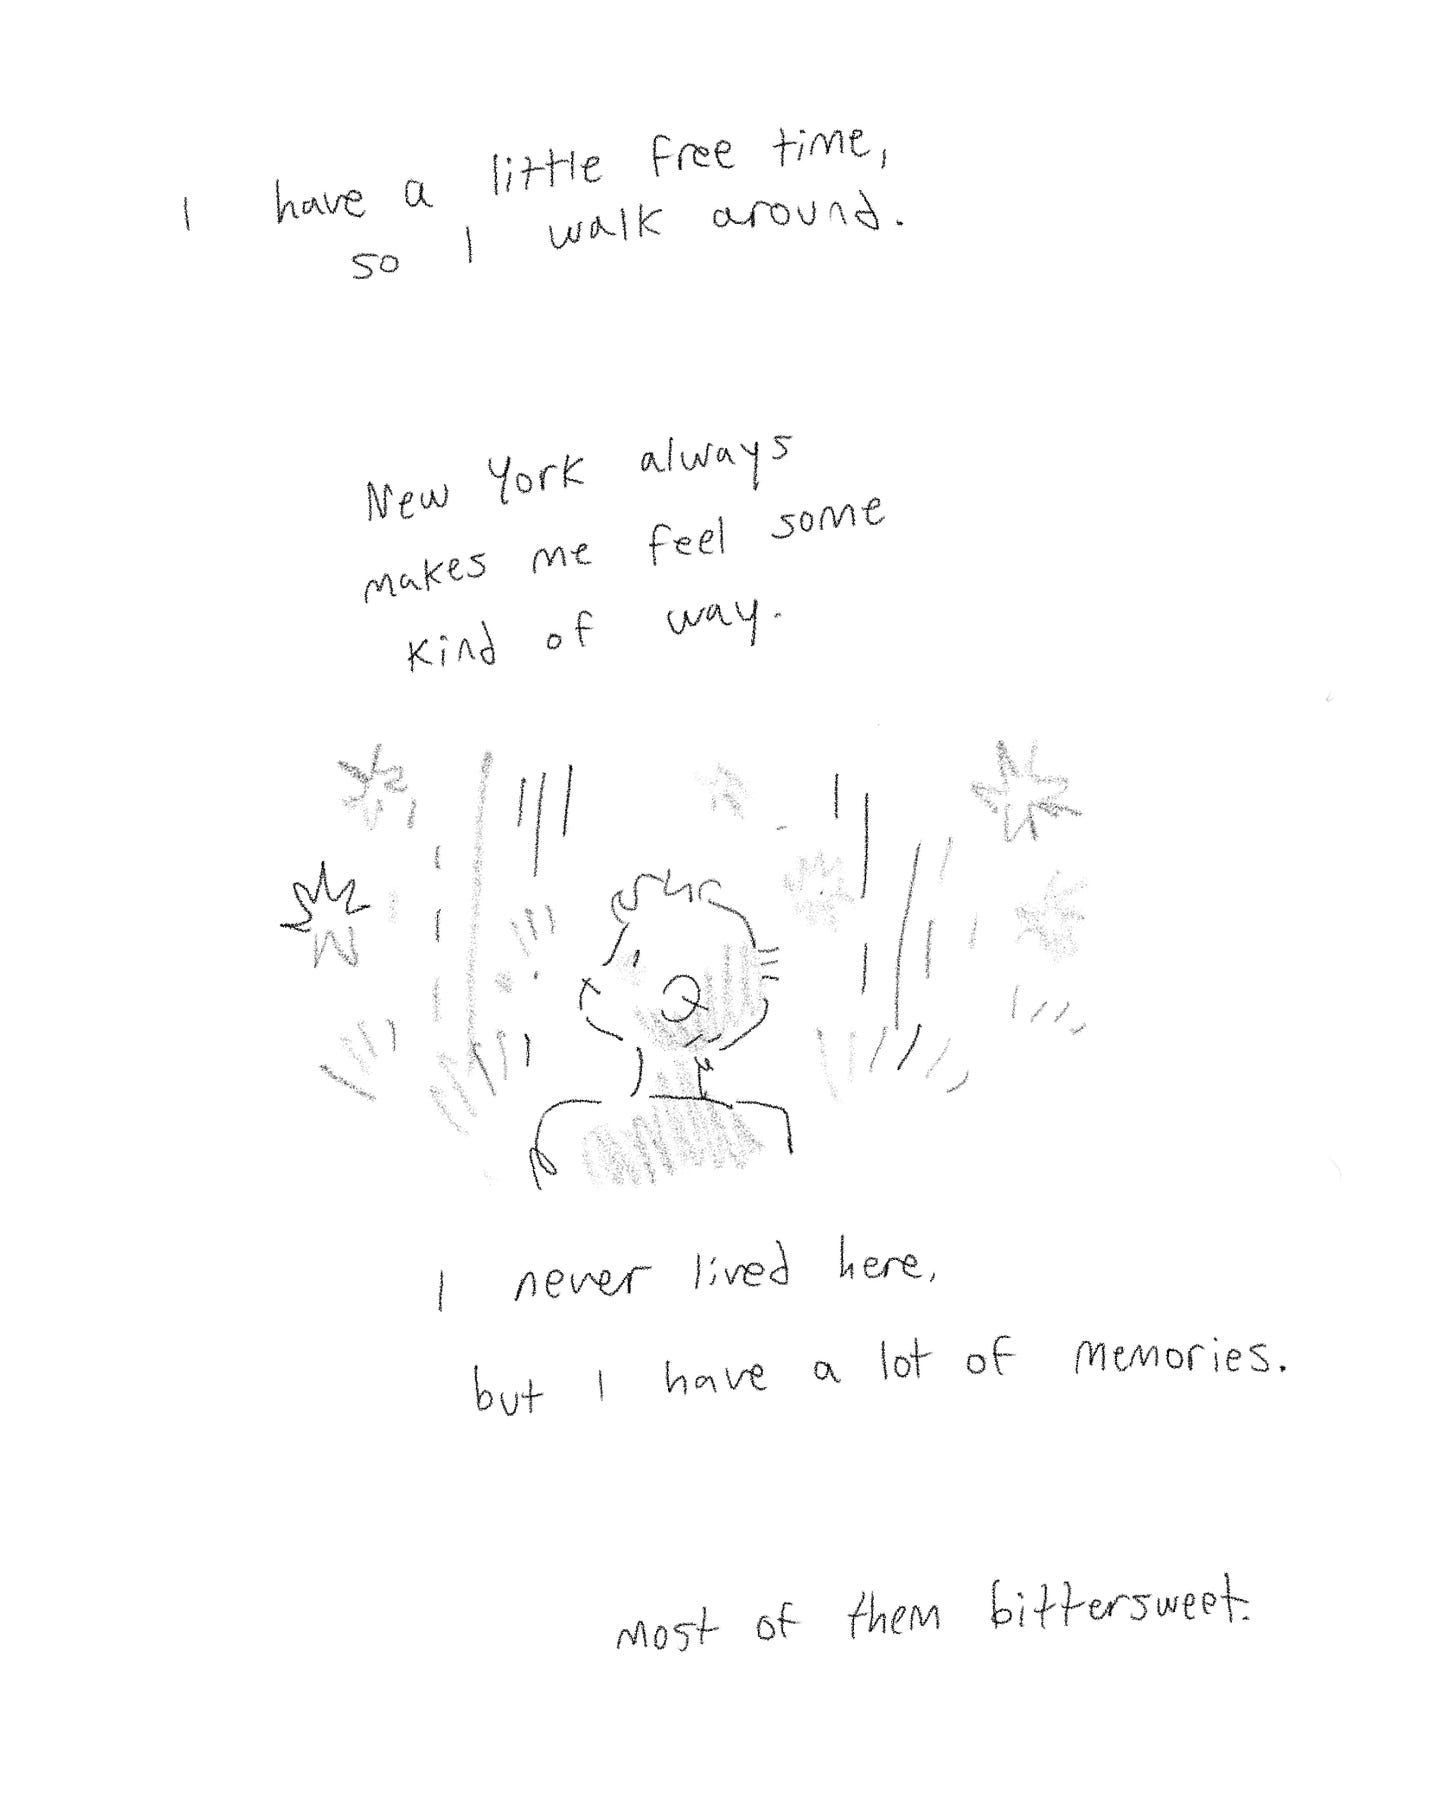 I have a little free time,
so I walk around.
New York always
makes me feel some
kind of way.
I never lived here,
but I have a lot of memories.
most of them bittersweet.